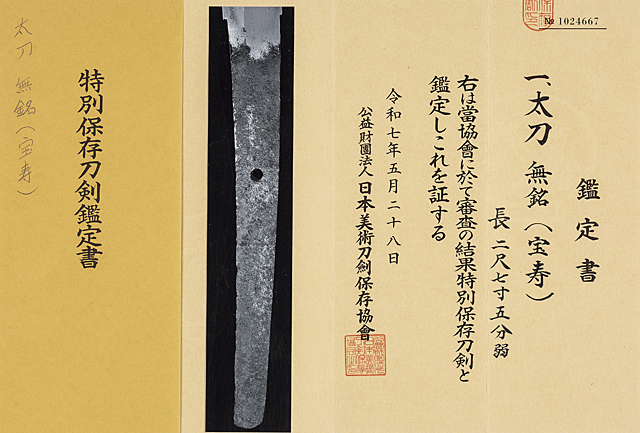 № 1024667
鑑定書
一、太刀 無銘（宝寿）
長 二尺七寸五分弱
右は當協會に於て審査の結果特別保存刀剣と
鑑定しこれを証する
令和七年五月二十八日
公益財團法人 日本美術刀劍保存協會
特別保存刀剣鑑定書
太刀 無銘（宝寿）